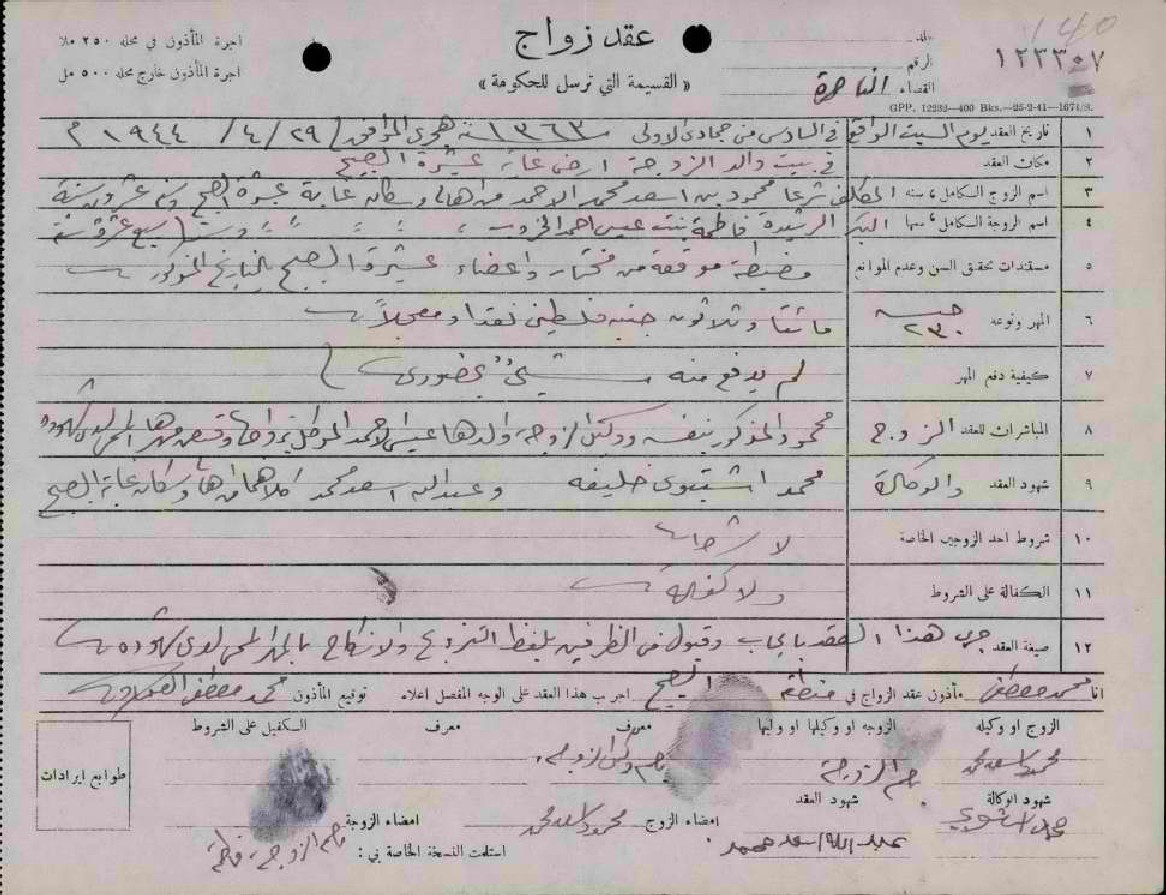 140
عقد زواج
« القسيمة التي ترسل للحكومة »
اجرة المأذون في محله ٢٥٠ ملا
اجرة المأذون خارج محله ٥٠٠ مل
جلد
الرقم
القضاء الناصرة
١٢٣٣٠٧
GPP. 12232—400 Bks.—25-2-41—1674/S.
١ تاريخ العقد يوم السبت الواقع في السادس من جمادى الاولى سنة ١٣٦٣ هجري الموافق ٢٩ / ٤ / ١٩٤٤ م
٢ مكان العقد في بيت والد الزوجة ارض غابة عشيرة الصبيح
٣ اسم الزوج الكامل ، سنه المكلف شرعا محمود بن اسعد محمد الاحمد من اهالي وسكان غابة عشيرة الصبيح وسنه عشرون سنة
٤ اسم الزوجة الكامل ، سنها البكر الرشيدة فاطمة بنت عيسى احمد وسنها سبع عشرة سنة
٥ مستندات تحقق السن وعدم الموانع مضبطة موقعة من مختار واعضاء عشيرة الصبيح بالتاريخ المذكور
٦ المهر ونوعه جنيه ٢٣٠ مائتا وثلاثون جنيه فلسطيني نقدا ومعجلا
٧ كيفية دفع المهر لم يدفع منه شيئ بحضوري
٨ المباشرات للعقد الزوج محمود المذكور بنفسه ووكيل الزوجة والدها عيسى الاحمد الموكل بزواجها وقبض مهرها
٩ شهود العقد والوكالة محمد اشتيوي خليفه وعبدالله اسعد محمد كلاهما من اهالي وسكان غابة الصبيح
١٠ شروط احد الزوجين الخاصة لا شروط
١١ الكفالة على الشروط ولا كفالة
١٢ صيغة العقد جرى هذا العقد بايجاب وقبول من الطرفين بلفظ التزويج والانكاح بالمهر المسمى لدى شهوده
انا محمد مصطفى مأذون عقد الزواج في منطقة الصبيح اجريت هذا العقد على الوجه المفصل اعلاه توقيع المأذون محمد مصطفى
الزوج او وكيله الزوجه او وكيلها او وليها معرف معرف الكفيل على الشروط
محمود اسعد محمد الزوجة وكيل الزوجة
طوابع ايرادات
شهود الوكالة شهود العقد
محمد اشتيوي عبدالله اسعد محمد امضاء الزوج محمود اسعد محمد امضاء الزوجة
استلمت النسخة الخاصة بي : الزوجة فاطمة